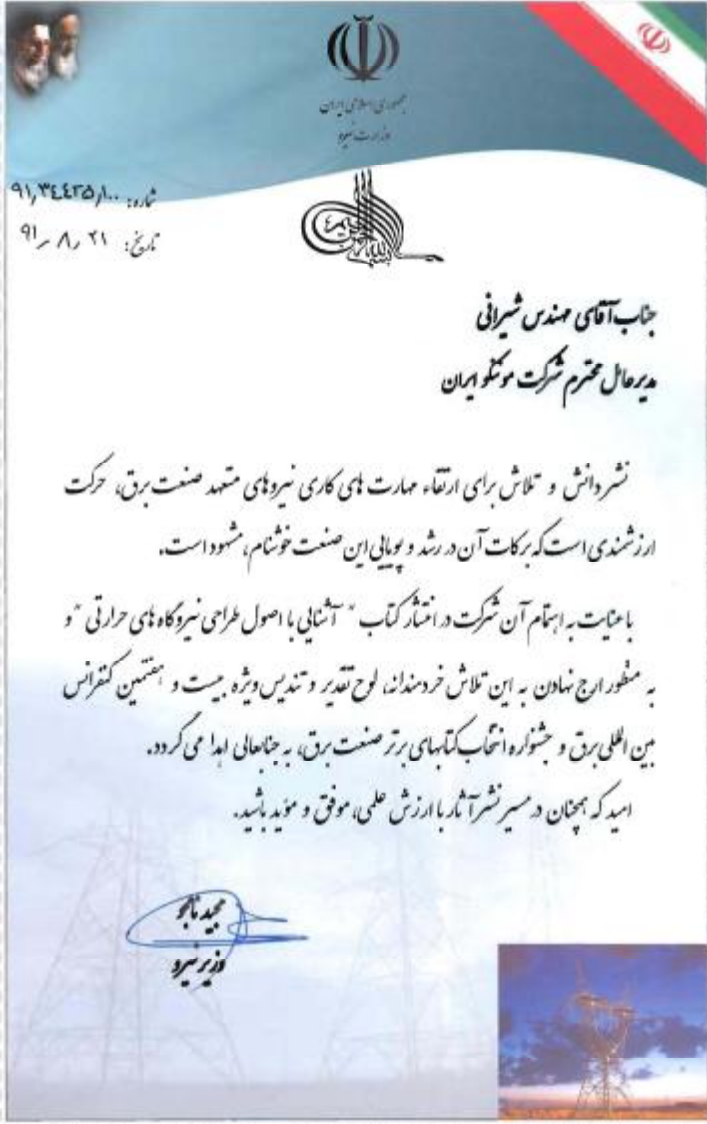 جمهوری اسلامی ایران
وزارت نیرو
شماره: ۹۱٫۳۴۴۲۵٫۱۰۰
تاریخ: ۲۱ ٫ ۸ ٫ ۹۱
جناب آقای مهندس شیرانی
مدیرعامل محترم شرکت مونکو ایران
نشر دانش و تلاش برای ارتقاء مهارت های کاری نیروهای متعهد صنعت برق، حرکت
ارزشمندی است که برکات آن در رشد و پویایی این صنعت خوشنام، مشهود است.
با عنایت به اهتمام آن شرکت در انتشار کتاب " آشنایی با اصول طراحی نیروگاه های حرارتی " و
به منظور ارج نهادن به این تلاش خردمندانه، لوح تقدیر و تندیس ویژه بیست و هفتمین کنفرانس
بین المللی برق و جشنواره انتخاب کتابهای برتر صنعت برق، به جنابعالی اهدا می گردد.
امید که همچنان در مسیر نشر آثار با ارزش علمی، موفق و مؤید باشید.
مجید نامجو
وزیر نیرو